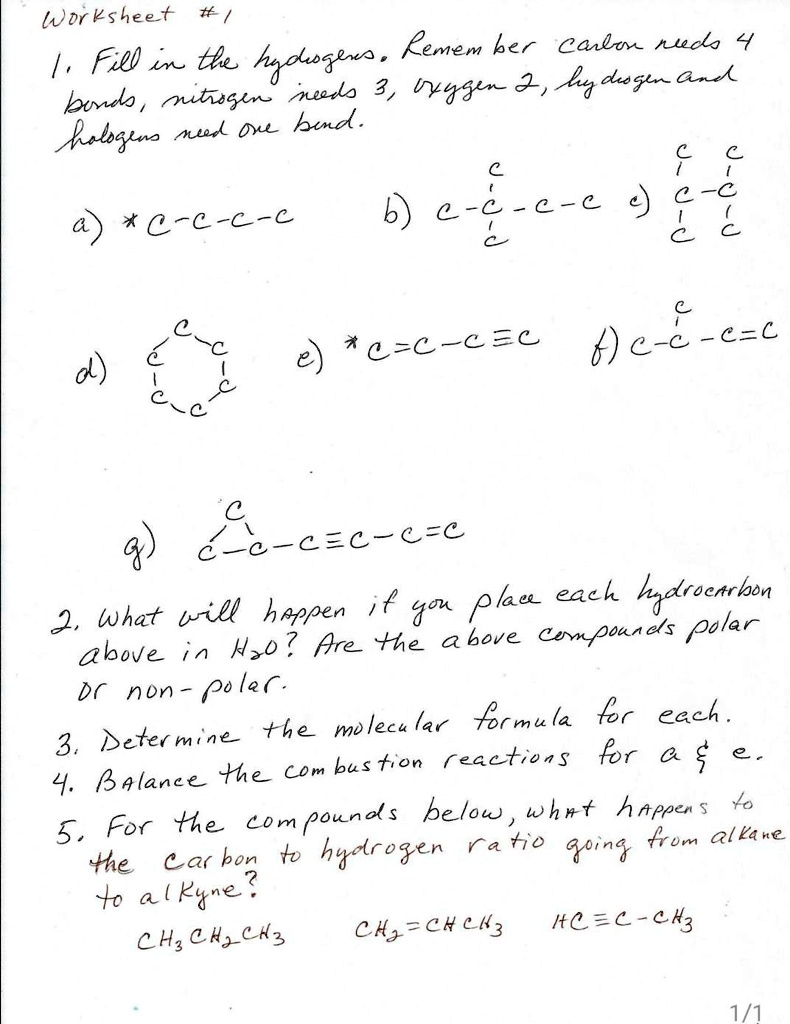 Worksheet #1
1. Fill in the hydrogens. Remember carbon needs 4
bonds, nitrogen needs 3, oxygen 2, hydrogen and
halogens need one bond.
a) *C-C-C-C
b) C-C-C-C
C
C
c) C-C
C C
C C
d) C
C C
C C
C
e) *C=C-C≡C
f) C-C-C=C
C
g) C-C-C≡C-C=C
C
2. What will happen if you place each hydrocarbon
above in H2O? Are the above compounds polar
or non-polar.
3. Determine the molecular formula for each.
4. Balance the combustion reactions for a & e.
5. For the compounds below, what happens to
the carbon to hydrogen ratio going from alkane
to alkyne?
CH3CH2CH3 CH2=CHCH3 HC≡C-CH3
1/1